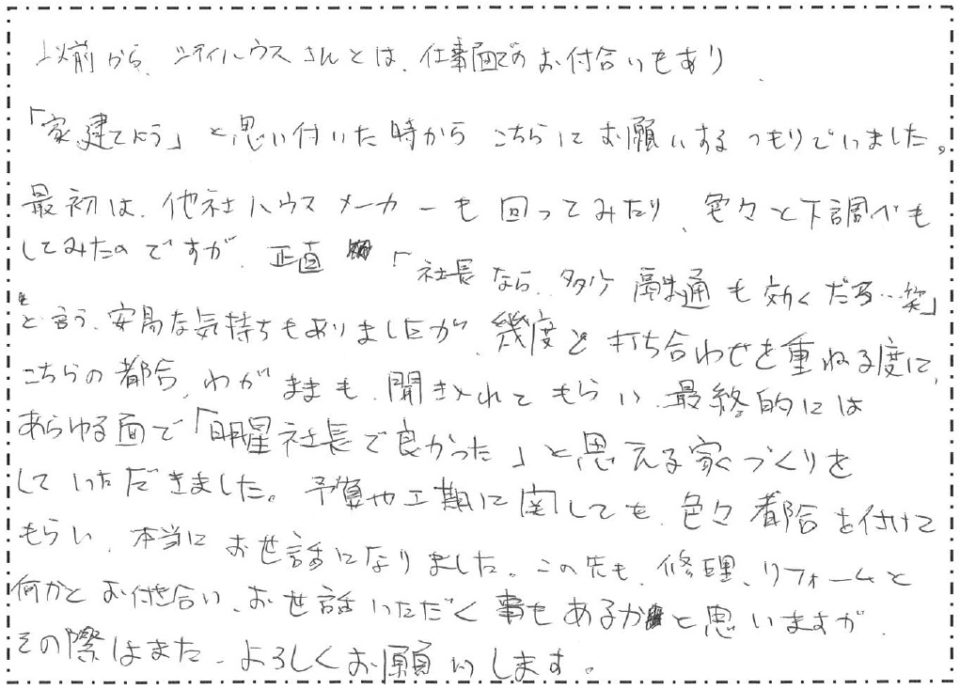 以前から、シティハウスさんとは、仕事面でのお付合いもあり、
「家建てよう」と思い付いた時からこちらにお願いするつもりでいました。
最初は、他社ハウスメーカーも回ってみたり、色々と下調べも
してみたのですが、正直「社長なら、多少融通も効くだろ…笑」
と言う、安易な気持ちもありましたが、幾度と打ち合わせを重ねる度に、
こちらの都合、わがままも、聞き入れてもらい、最終的には
あらゆる面で「明星社長で良かった」と思える家づくりを
していただきました。予算や工期に関しても、色々都合を付けて
もらい、本当にお世話になりました。この先も、修理、リフォームと
何かとお付き合い、お世話いただく事もあるかと思いますが、
その際はまた、よろしくお願いします。